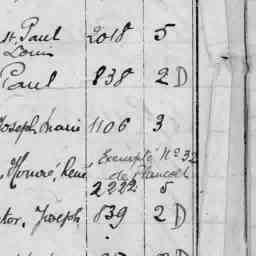 St. Paul 2018 5
Louis
Paul 838 2 D
Joseph Marie 1106 3
Exempté No 32
, Honoré, René de Plancoët
2222 5
tor, Joseph 839 2 D